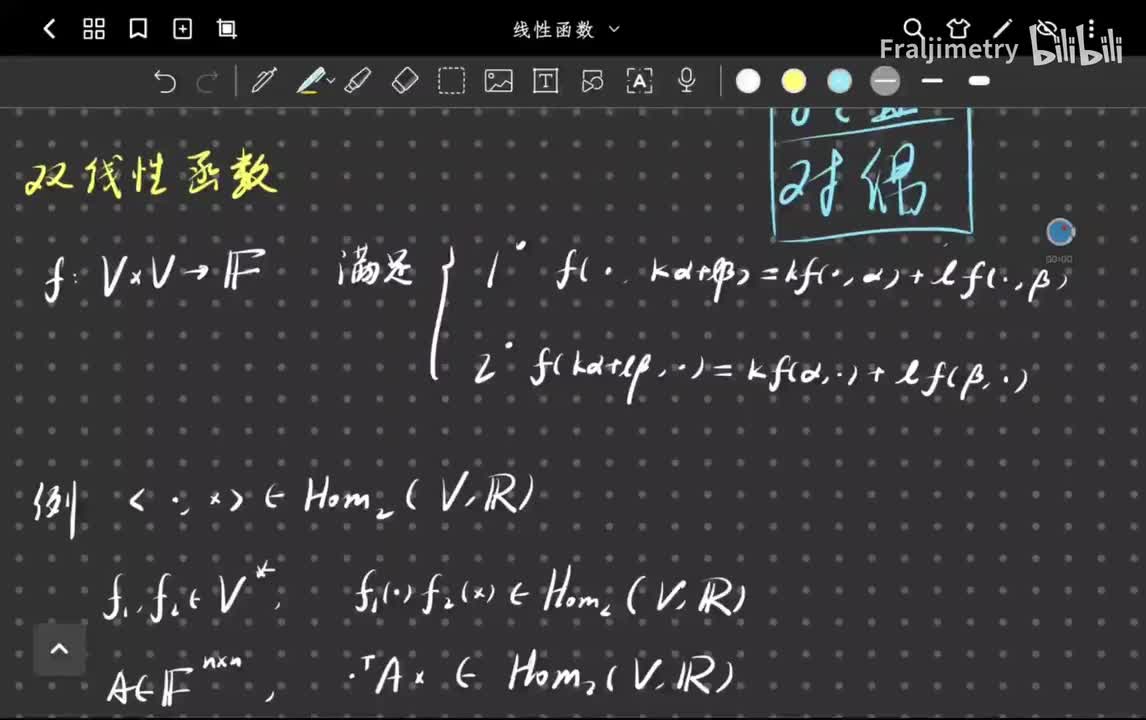 线性函数
Fraljimetry bilibili
对偶
双线性函数
00:00
f: V×V→𝔽 满足 { 1° f(·, kα+lβ)=kf(·,α)+lf(·,β)
2° f(kα+lβ,·)=kf(α,·)+lf(β,·)
例 <·,×> ∈ Hom₂(V,ℝ)
f₁,f₂∈V*, f₁(·)f₂(×)∈Hom₂(V,ℝ)
A∈𝔽ⁿˣⁿ, ·ᵀA× ∈ Hom₂(V,ℝ)